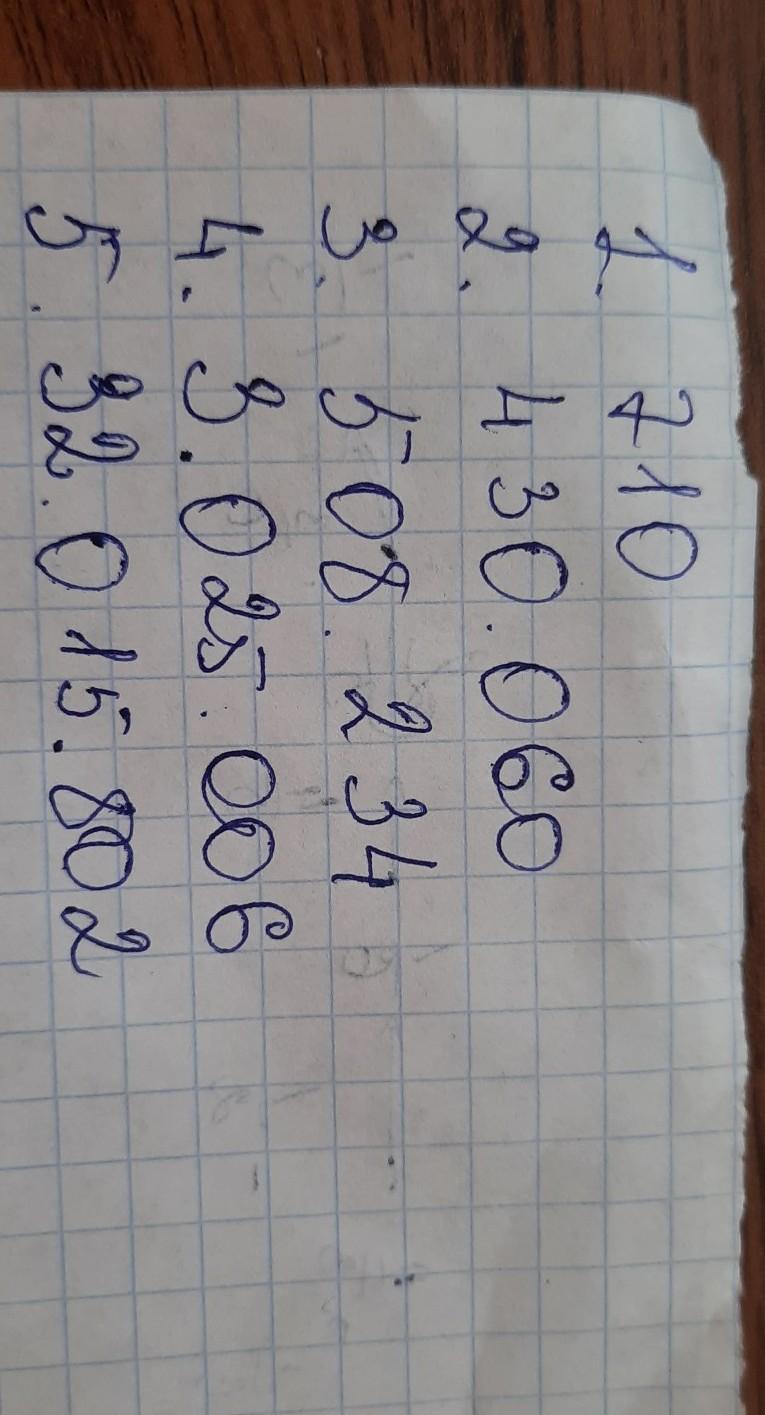 1. 710
2. 430.060
3. 508.234
4. 3.025.006
5. 32.015.802